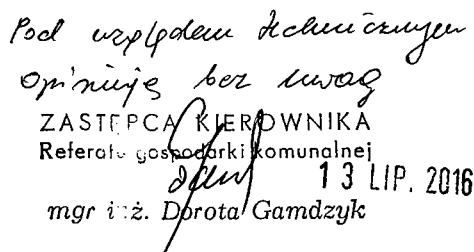 Pod względem technicznym
opiniuję bez uwag
ZASTĘPCA KIEROWNIKA
Referatu gospodarki komunalnej
13 LIP. 2016
mgr inż. Dorota Gamdzyk